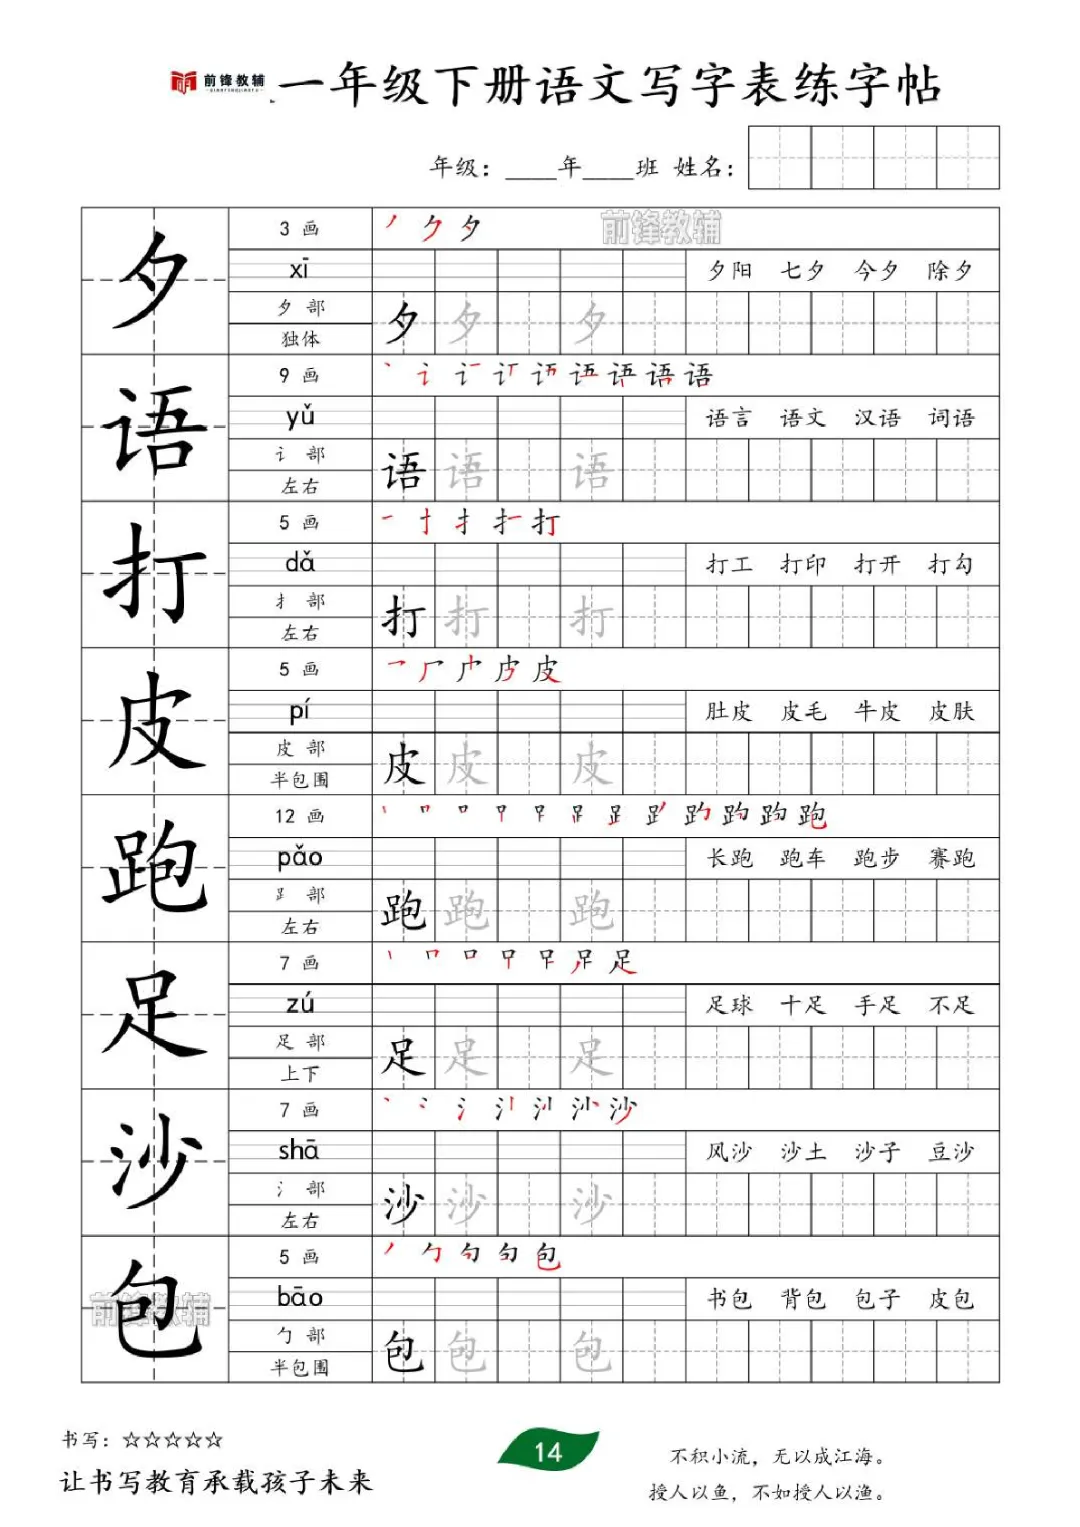 前锋教辅
QIANFENGJIAOFU
一年级下册语文写字表练字帖
年级：____年____班 姓名：
夕
3 画
前锋教辅
xī
夕阳 七夕 今夕 除夕
夕 部
独体
夕 夕 夕
语
9 画
yǔ
语言 语文 汉语 词语
讠 部
左右
语 语 语
打
5 画
dǎ
打工 打印 打开 打勾
扌 部
左右
打 打 打
皮
5 画
pí
肚皮 皮毛 牛皮 皮肤
皮 部
半包围
皮 皮 皮
跑
12 画
pǎo
长跑 跑车 跑步 赛跑
⻊ 部
左右
跑 跑 跑
足
7 画
zú
足球 十足 手足 不足
足 部
上下
足 足 足
沙
7 画
shā
风沙 沙土 沙子 豆沙
氵 部
左右
沙 沙 沙
包
5 画
bāo
书包 背包 包子 皮包
前锋教辅
勹 部
半包围
包 包 包
书写：☆☆☆☆☆
让书写教育承载孩子未来
14
不积小流，无以成江海。
授人以鱼，不如授人以渔。